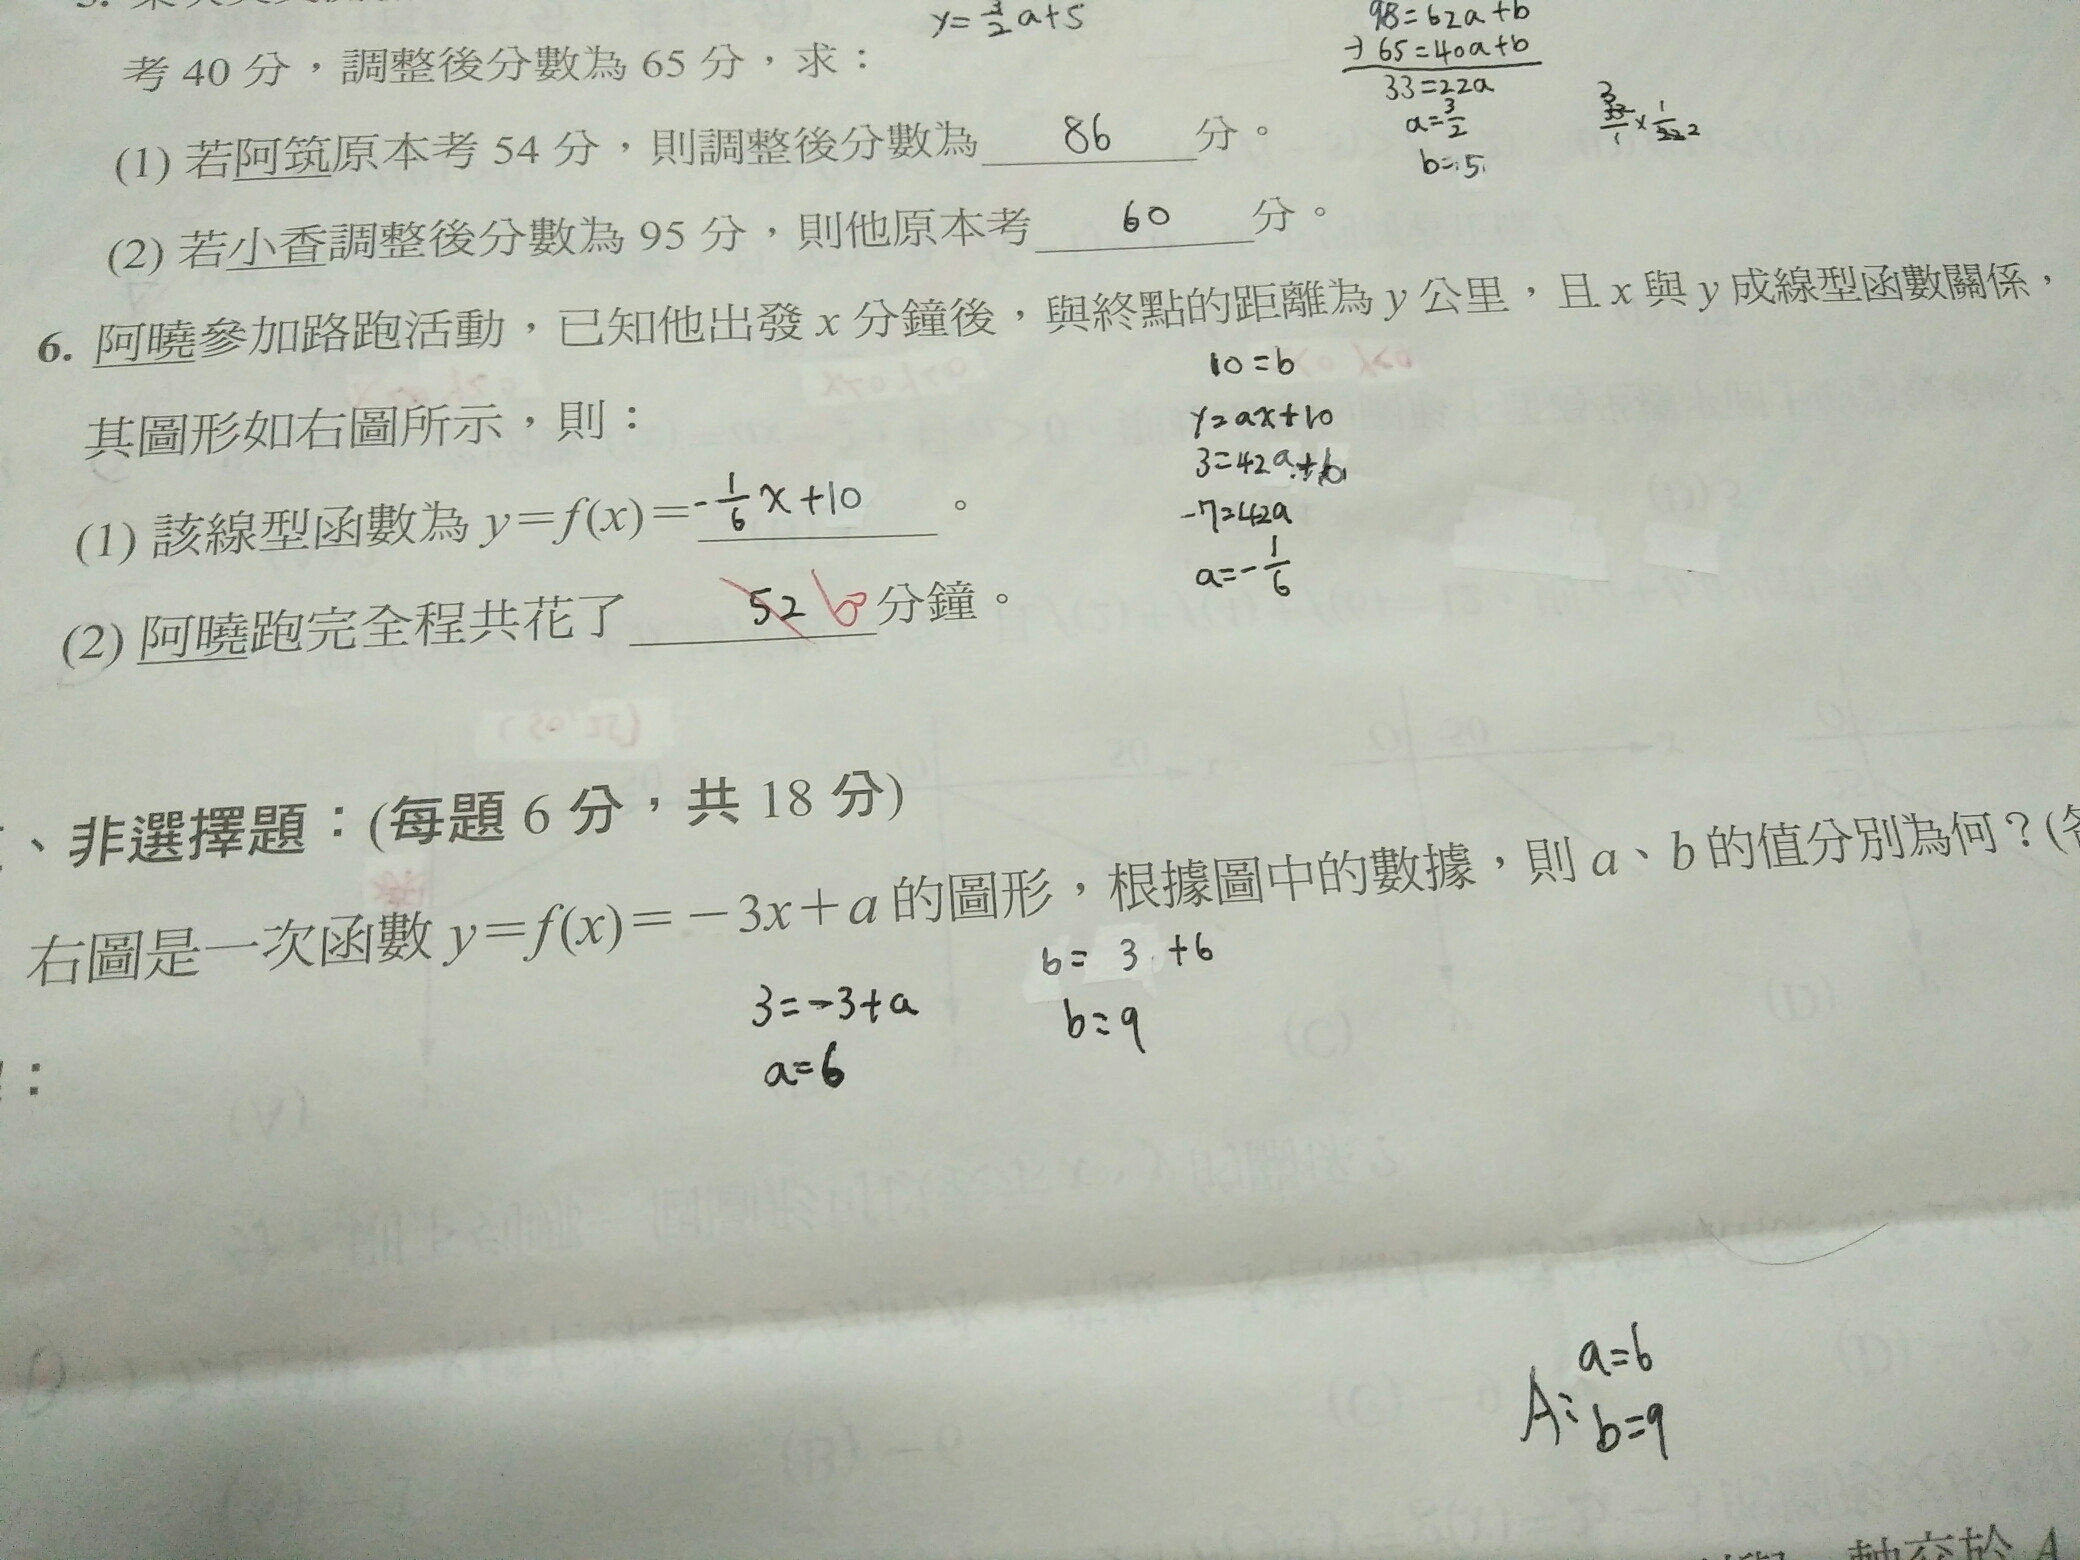 y=3/2a+5
98=62a+b
→65=40a+b
33=22a
a=3/2
b=5
考 40 分，調整後分數為 65 分，求：
(1) 若阿筑原本考 54 分，則調整後分數為 86 分。
(2) 若小香調整後分數為 95 分，則他原本考 60 分。
6. 阿曉參加路跑活動，已知他出發 x 分鐘後，與終點的距離為 y 公里，且 x 與 y 成線型函數關係，
其圖形如右圖所示，則：
10=b
y=ax+10
3=42a+b
-7=42a
a=-1/6
(1) 該線型函數為 y=f(x)=-1/6x+10。
(2) 阿曉跑完全程共花了 52 60 分鐘。
、非選擇題：(每題 6 分，共 18 分)
右圖是一次函數 y=f(x)=-3x+a 的圖形，根據圖中的數據，則 a、b 的值分別為何？(
3=-3+a
a=6
b=3+6
b=9
：
A: a=6
b=9
軸交於 A